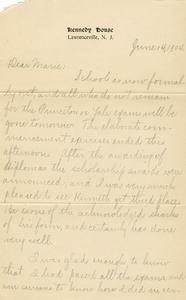 Kennedy House
Lawrenceville, N. J.
June 14, 190
Dear Marie:
School is now formal
out, and all who do not remain
for the Princeton or Yale exams will be
gone tomorrow. The elaborate com-
mencement exercises ended this
afternoon. After the awarding of
diplomas the scholarship awards were
announced, and I was very much
pleased to see Kenneth get third place.
He is one of the acknowledged sharks
of his form, and certainly has done
very well.
I was glad enough to know
that I had passed all the exams and
am curious to know how I did in cer-